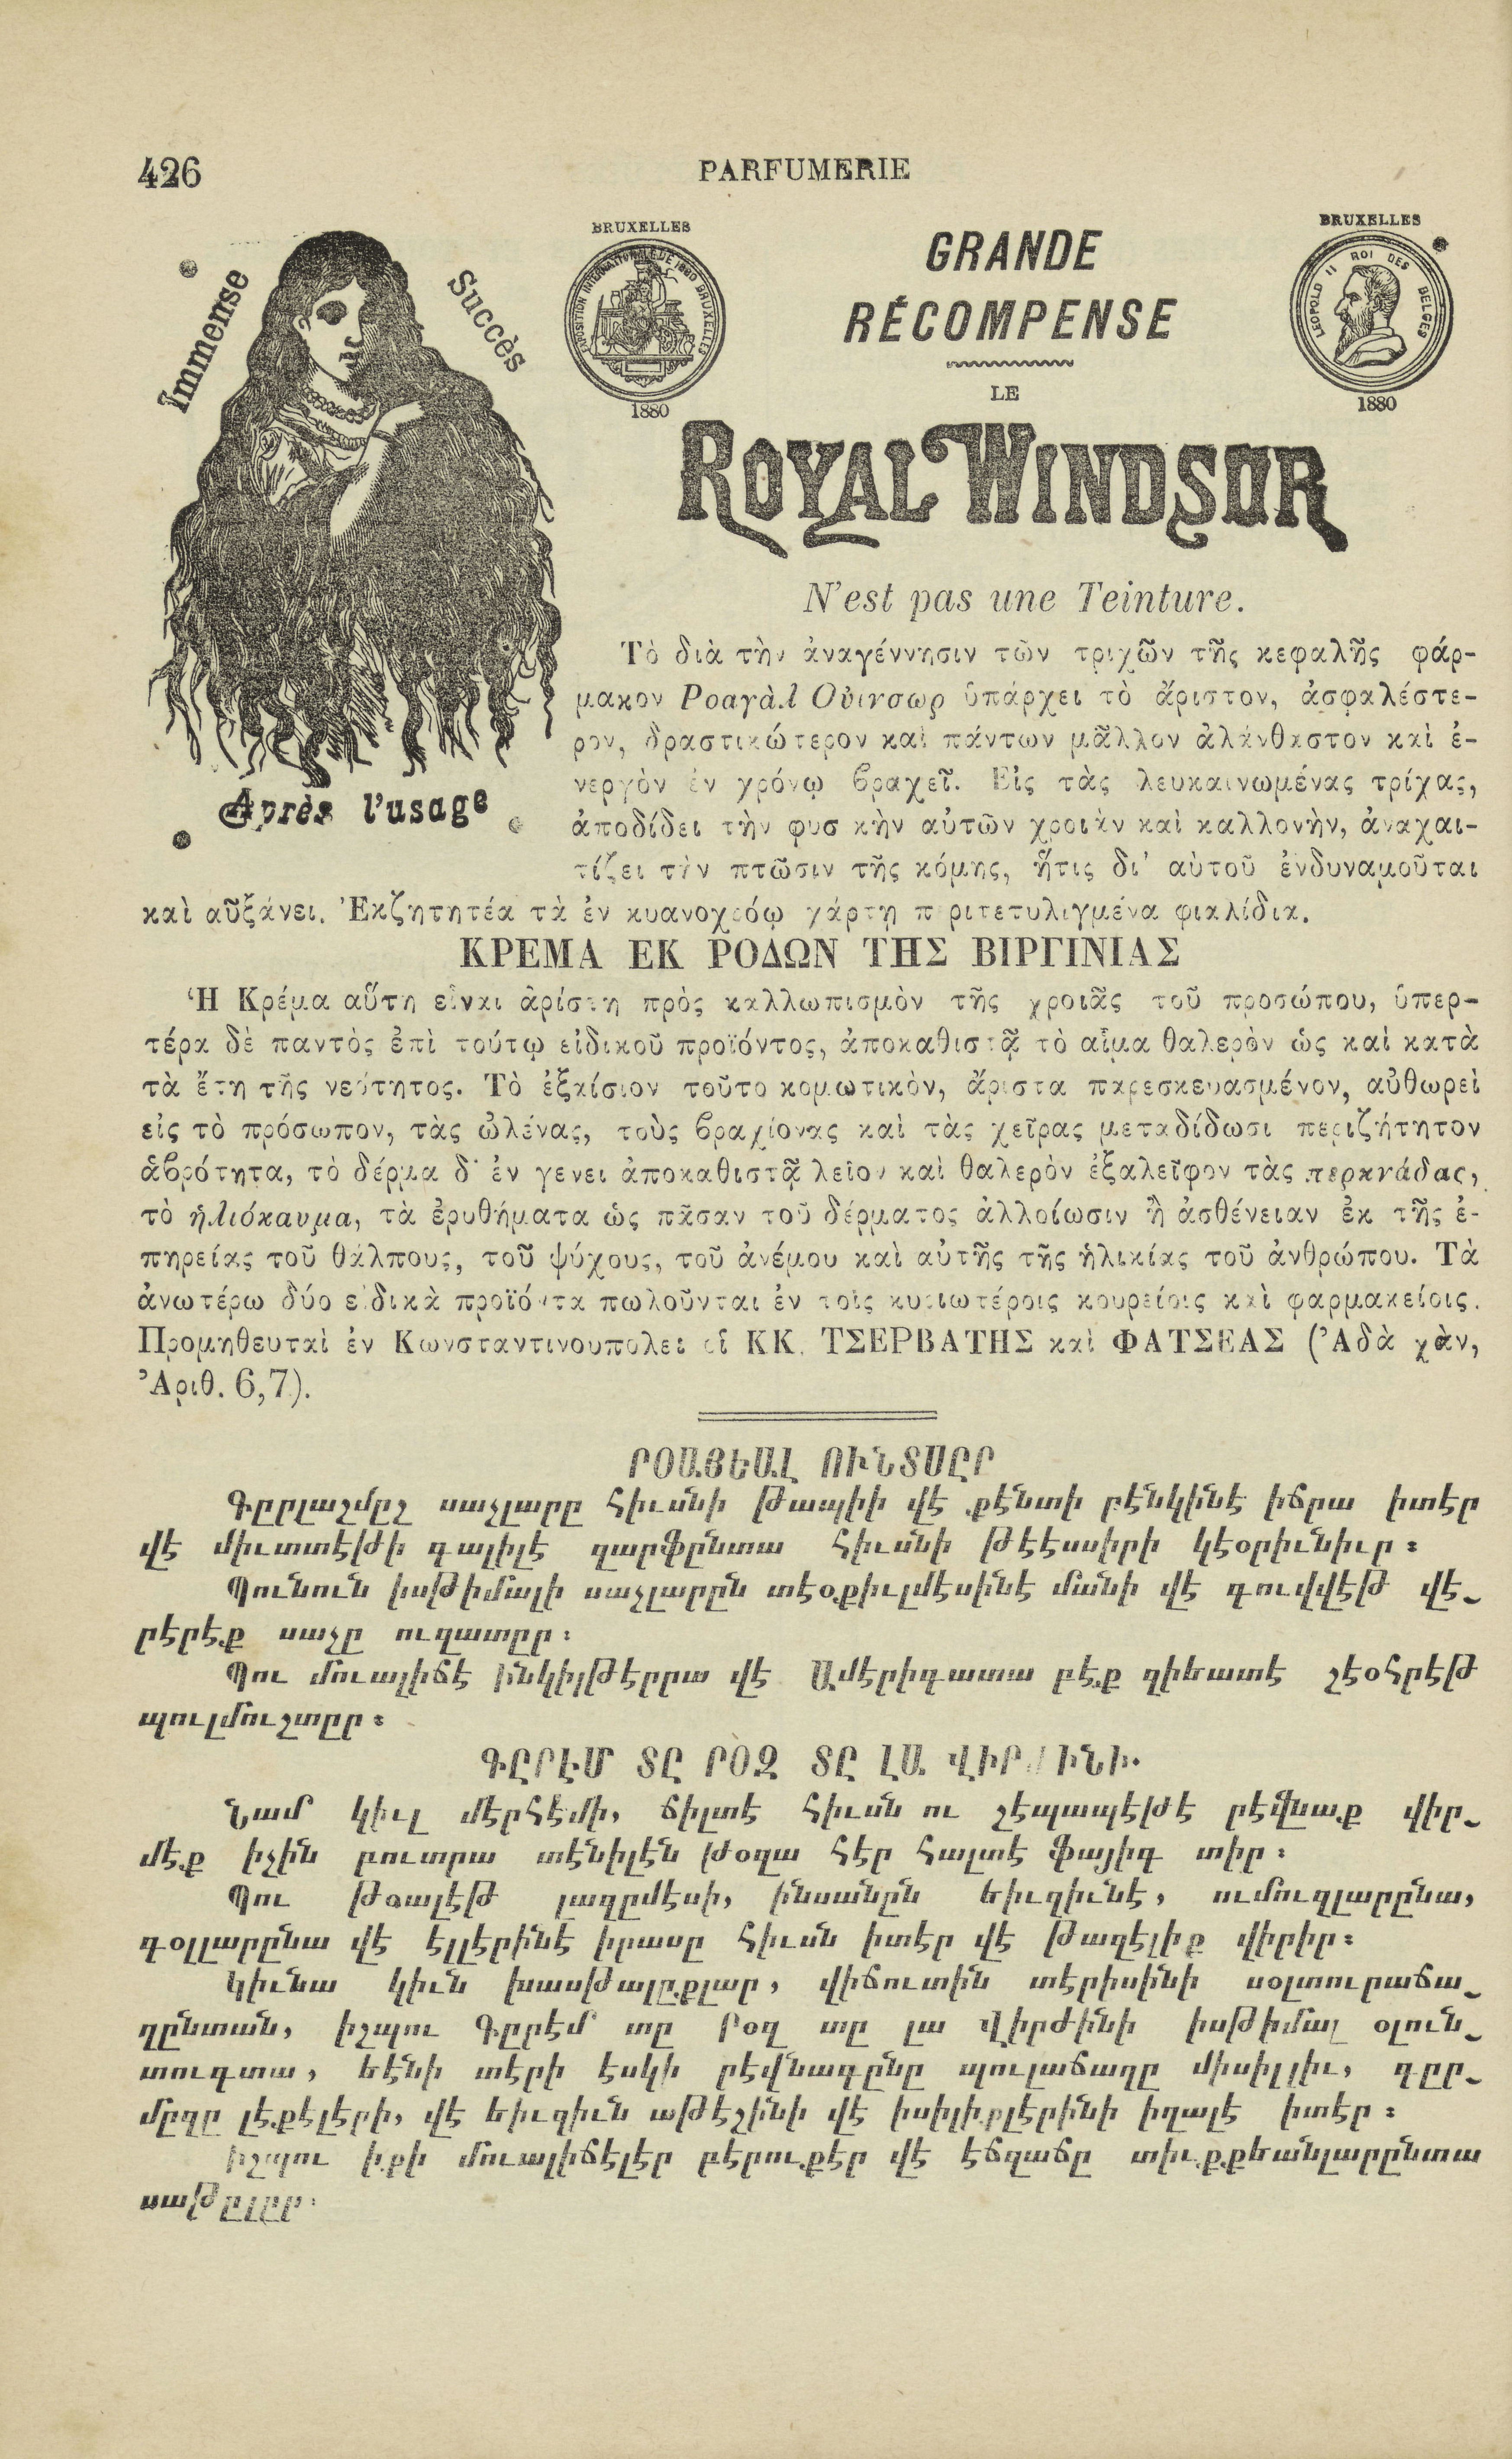 426
PARFUMERIE
Immense Succès
Après l'usage
BRUXELLES
EXPOSITION INTERNATIONALE DE 1880 BRUXELLES
1880
GRANDE
RÉCOMPENSE
BRUXELLES
LEOPOLD II ROI DES BELGES
1880
LE
ROYAL WINDSOR
N'est pas une Teinture.
Τὸ διὰ τὴν ἀναγέννησιν τῶν τριχῶν τῆς κεφαλῆς φάρ-
μακον Ροαγὰλ Οὐινσωρ ὑπάρχει τὸ ἄριστον, ἀσφαλέστε-
ρον, δραστικώτερον καὶ πάντων μᾶλλον ἀλάνθαστον καὶ ἐ-
νεργὸν ἐν χρόνῳ βραχεῖ. Εἰς τὰς λευκαινωμένας τρίχας,
ἀποδίδει τὴν φυσ κὴν αὐτῶν χροιὰν καὶ καλλονὴν, ἀναχαι-
τίζει τὴν πτῶσιν τῆς κόμης, ἥτις δι' αὐτοῦ ἐνδυναμοῦται
καὶ αὔξάνει. Ἐκζητητέα τὰ ἐν κυανοχρόῳ χάρτῃ περιτετυλιγμένα φιαλίδια.
ΚΡΕΜΑ ΕΚ ΡΟΔΩΝ ΤΗΣ ΒΙΡΓΙΝΙΑΣ
Ἡ Κρέμα αὕτη εἶναι ἀρίστη πρὸς καλλωπισμὸν τῆς χροιᾶς τοῦ προσώπου, ὑπερ-
τέρα δὲ παντὸς ἐπὶ τούτῳ εἰδικοῦ προϊόντος, ἀποκαθιστᾷ τὸ αἷμα θαλερὸν ὡς καὶ κατὰ
τὰ ἔτη τῆς νεότητος. Τὸ ἐξαίσιον τοῦτο κομωτικὸν, ἄριστα παρεσκευασμένον, αὐθωρεὶ
εἰς τὸ πρόσωπον, τὰς ὠλένας, τοὺς βραχίονας καὶ τὰς χεῖρας μεταδίδωσι περιζήτητον
ἁβρότητα, τὸ δέρμα δ' ἐν γενει ἀποκαθιστᾷ λεῖον καὶ θαλερὸν ἐξαλεῖφον τὰς περκνάδας,
τὸ ἡλιόκαυμα, τὰ ἐρυθήματα ὡς πᾶσαν τοῦ δέρματος ἀλλοίωσιν ἢ ἀσθένειαν ἐκ τῆς ἐ-
πηρείας τοῦ θάλπους, τοῦ ψύχους, τοῦ ἀνέμου καὶ αὐτῆς τῆς ἡλικίας τοῦ ἀνθρώπου. Τὰ
ἀνωτέρω δύο εἰδικὰ προϊόντα πωλοῦνται ἐν τοῖς κυριωτέροις κουρείοις καὶ φαρμακείοις.
Προμηθευταὶ ἐν Κωνσταντινουπόλει οἱ ΚΚ. ΤΣΕΡΒΑΤΗΣ καὶ ΦΑΤΣΕΑΣ (Ἀδὰ χὰν,
Ἀριθ. 6,7).
ՐՕԱՅԵԱԼ ՈՒՆՏՍԸՐ
Գըրլաշմըշ սաչլարը հիւսնի թապիի վէ քէնտի րէնկինէ իճրա իտէր
վէ միւտտէթի գալիլէ զարֆընտա հիւսնի թէէսսիրի կէօրիւնիւր ։
Պունուն իսթիմալի սաչլարըն տէօքիւլմէսինէ մանի վէ գուվվէթ վէ֊
րէրէք սաչը ուզատըր ։
Պու մուալիճէ Ինկիլթէրրա վէ Ամէրիգատա բէք զիեատէ շէօհրէթ
պուլմուշտըր ։
ԳԸՐԷՄ ՏԸ ՐՕԶ ՏԸ ԼԱ ՎԻՐԺԻՆԻ.
Նամ կիւլ մէրհէմի, ճիլտէ հիւսն ու շէպապէթէ րէվնաք վիր֊
մէք իչին բուտրա տէնիլէն թօզա հէր հալտէ ֆայիգ տիր ։
Պու թօալէթ լազըմէսի, ինսանըն եիւզիւնէ, ումուզլարընա,
գօլլարընա վէ էլլէրինէ իրասը հիւսն իտէր վէ թազէլիք վիրիր։
Կիւնա կիւն խասթալըքլար, վիճուտին տէրիսինի սօլտուրաճա֊
ղընտան, իշպու Գըրէմ տը Րօզ տը լա Վիրժինի իսթիմալ օլուն֊
տուգտա, եէնի տէրի էսկի րէվնագընը պուլաճաղը միսիլլիւ, գըր֊
մըզը լէքէլէրի, վէ եիւզիւն աթէշինի վէ իսիլիքլէրինի իզալէ իտէր ։
Իշպու իքի մուալիճէլէր բէրուքէր վէ էճզաճը տիւքքեանլարընտա
սաթըլըր։